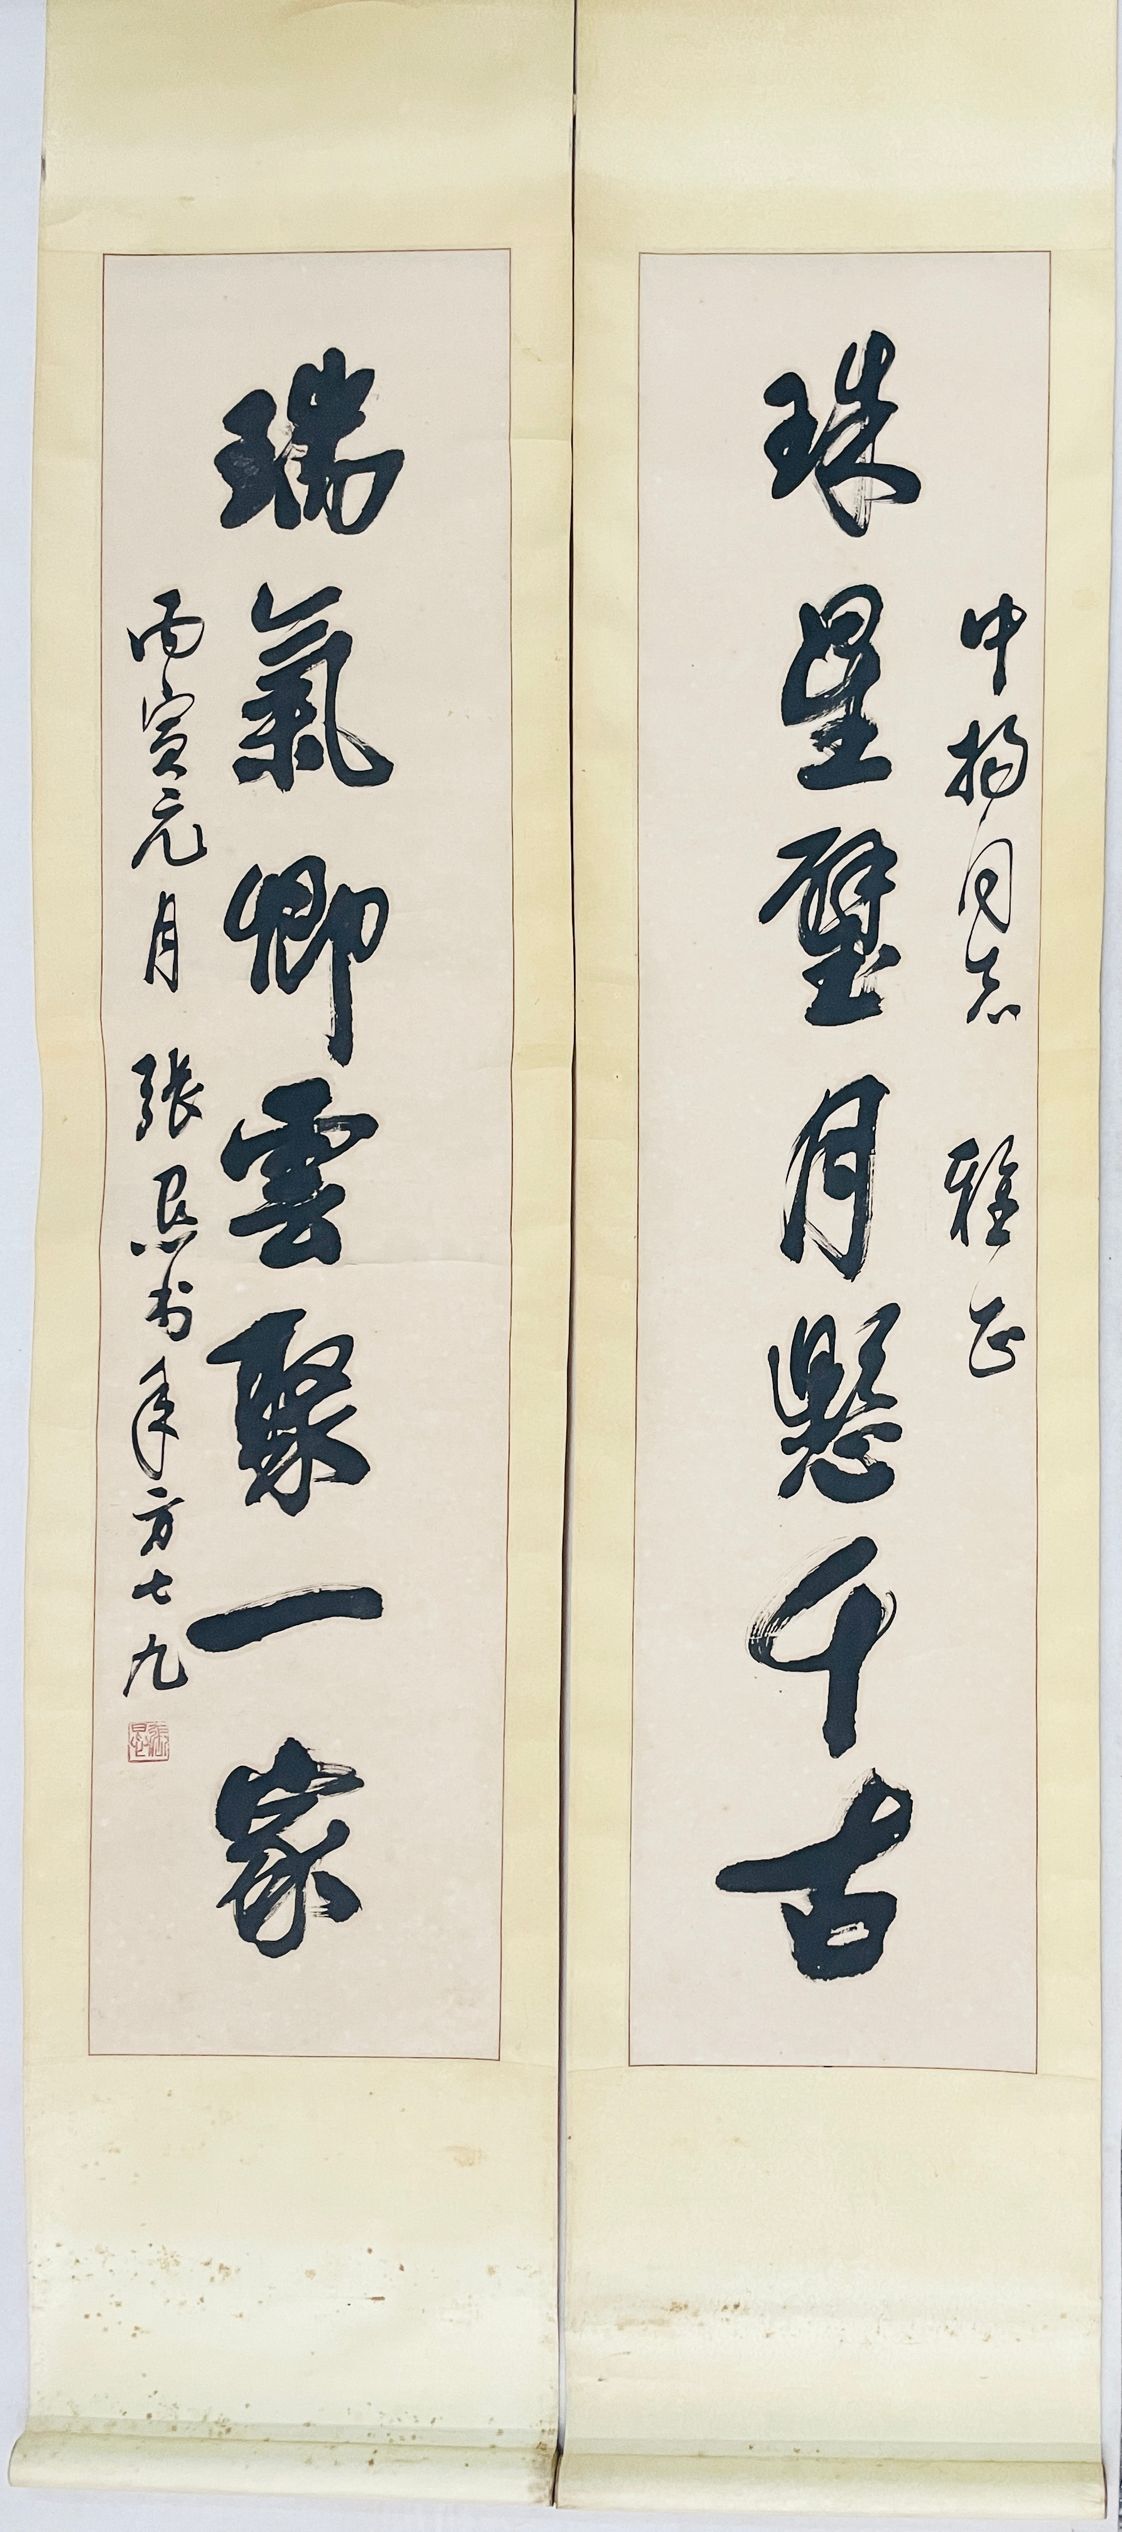 中揚同志 雅正
珠星璧月懸千古
瑞氣卿雲聚一家
丙寅元月 張㤙书年方七九